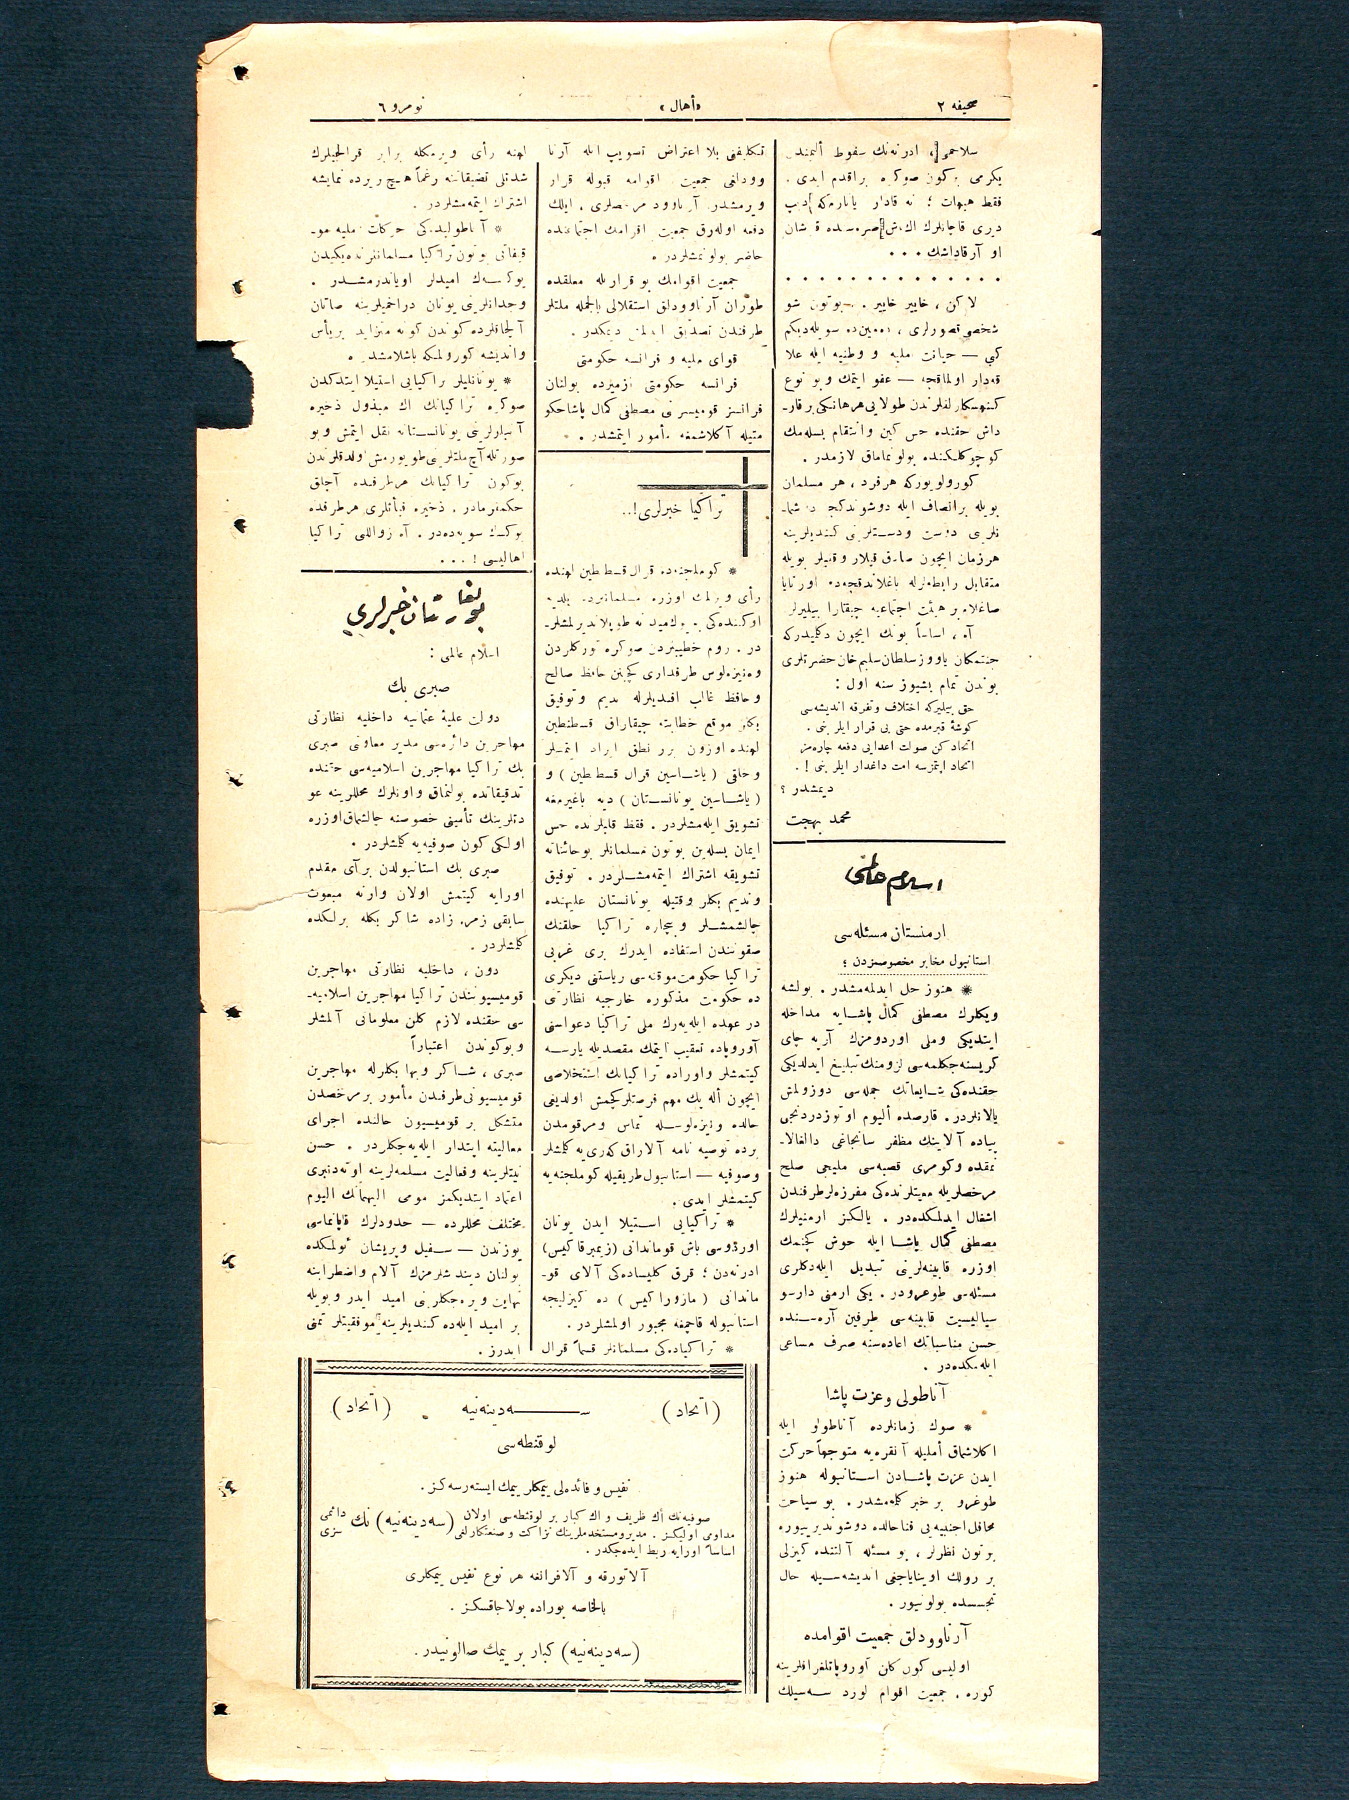 صحیفه ٢
«أهالی»
نومرو ٦
یکرمی بوکون صوکره براقدم ایدی .
او آرقاداشك . . .
لاکن ، خایر خایر . بوتون شو
کبی — حیات ملیه و وطنیه ایله علا
قه‌دار اولماقجه — عفو ایتمك و بو نوع
داش حقنده حس کین و انتقام بسله‌مك
کوچوکلکنده بولونماماق لازمدر .
کورولویورکه هرفرد ، هر مسلمان
بویله برانصاف ایله دوشوندکجه
هرزمان ایچون صادق قیلار وقتیلر بویله
متقابل رابطه‌لرله باغلاندقجه‌ده اورتایا
صاغلام برهیئت اجتماعیه چیقارا بیلیرلر
آه ، اساساً بونك ایچون دکلیدرکه
جنتمکان یاووز سلطان سلیم خان حضرتلری
بوندن تمام بشیوز سنه اول :
حق بیلیرکه اختلاف وتفرقه اندیشه‌سی
کوشهٔ قبرمده حتی بی قرار ایلر بنی .
اتحادکن صولت اعدایی دفعه چاره‌مز
اتحاد ایتمزسه امت داغدار ایلر بنی ! .
دیمشدر ؟
محمد بهجت
اسلام عالمی
ارمنستان مسئله‌سی
استانبول مخابر مخصوصمزدن :
* هنوز حل ایدلمه‌مشدر . بولشه
ویکلرك مصطفی کمال پاشایه مداخله
ایتدیکی وملی اوردومزك آرپه چای
کریسنه چکلمه‌سی لزومنك تبلیغ ایدلدیکی
حقنده‌کی شایعاتك جمله‌سی دوزولمش
یالانلردر . قارصده ألیوم اوتوزدردنجی
پیاده آلاینك مظفر سانجاغی دالغالا-
نمقده وکومری قصبه‌سی ملیجی صلح
مرخصلریله معیتلرنده‌کی مفرزه‌لر طرفندن
اشغال ایدلمکده‌در . یالکز ارمنیلرك
مصطفی کمال پاشا ایله خوش کچنمك
اوزره قابینه‌لرنی تبدیل ایله‌دکلری
مسئله‌سی طوغرودر . یکی ارمنی دارسو
سیالیست قابینه‌سی طرفین آره‌سنده
حسن مناسباتك اعاده‌سنه صرف مساعی
ایله‌مکده‌در .
آناطولی و عزت پاشا
* صوك زمانلرده آناطولو ایله
اکلاشماق أملیله آنقره‌یه متوجهاً حرکت
ایدن عزت پاشادن استانبوله هنوز
طوغرو بر خبر کلمه‌مشدر . بو سیاحت
محافل اجنبیه‌یی فنا حالده دوشوندیریبوره
بوتون نظرلر ، بو مسئله آلتنده کیزلی
بر رولك اوینایاجغی اندیشه‌سیله حال
تجسسده بولونیور .
آرناوودلق جمعیت اقوامده
اولیسی کون کان آوروپا تلغرافلرینه
کوره ، جمعیت اقوام لورد سه‌سیلك
تکلیفنی بلا اعتراض تصویب ایله آرنا
وودلغی جمعیت اقوامه قبوله قرار
ویرمشدر. آرناوود مرخصلری ، ایلك
دفعه اوله‌رق جمعیت اقوامك اجتماعنده
حاضر بولونمشلردر .
جمعیت اقوامك بو قراریله معلقده
طوران آرناوودلق استقلالی بالجمله ملتلر
طرفندن تصدیق ایدلمش دیمکدر .
قوای ملیه و فرانسه حکومتی
فرانسه حکومتی ازمیرده بولنان
فرانسز قومیسرنی مصطفی کمال پاشا حکو
متیله آکلاشمغه مأمور ایتمشدر .
تراکیا خبرلری!..
* کوملجنه‌ده قرال قسطنطین لهنده
رأی ویرلمك اوزره مسلمانلرده بلدیه
در . روم خطیبندن صوکره تورکلردن
وه‌نیزه‌لوس طرفداری کچینن حافظ صالح
وحافظ غالب افندیلرله ندیم وتوفیق
بکلر موقع خطابته چیقاراق قسطنطین
لهنده اوزون برر نطق ایراد ایتمشلر
وخلقی (یاشاسین قرال قسطنطین) و
(یاشاسین یونانستان) دیه باغیرمغه
تشویق ایله‌مشلردر . فقط قلبلرنده حس
ایمان بسله‌ین بوتون مسلمانلر بوخائنانه
تشویقه اشتراك ایتمه‌مشلردر . توفیق
وندیم بکلر وقتیله یونانستان علیهنده
چالشمشلر و بیچاره تراکیا خلقنك
صفوتندن استفاده ایدرك بری غربی
تراکیا حکومت موقته‌سی ریاستنی دیکری
ده حکومت مذکوره خارجیه نظارتنی
در عهده ایله‌یه‌رك ملی تراکیا دعواسنی
آوروپاده تعقیب ایتمك مقصدیله پارسه
کیتمشلر و اوراده تراکیانك استخلاصی
ایچون أله پك مهم فرصتلر کچمش اولدیغی
حالده ونیزه‌لوسله تماس و مرقومدن
برده توصیه نامه آلاراق که‌ری‌یه کلمشلر
وصوفیه — استانبول طریقیله کوملجنه‌یه
کیتمشلر ایدی .
* تراکیایی استیلا ایدن یونان
اوردوسی باش قوماندانی (زیمبراقاکیس)
ادرنه‌دن ؛ قرق کلیساده‌کی آلای قو-
ماندانی (مازوراکیس) ده کیزلیجه
استانبوله قاچمغه مجبور اولمشلردر .
* تراکیاده‌کی مسلمانلر قسماً قرال
لهنه رأی ویرمکله برابر قرالجیلرك
شدتلی تضییقاتنه رغماً هیچ بریرده نمایشه
اشتراك ایتمه‌مشلردر .
* آناطولیده‌کی حرکات ملیه مو-
فقیاتی بوتون تراکیا مسلمانلرنده یکیدن
یوکسك امیدلر اویاندرمشدر .
وجدانلرینی یونان دراخمیلرینه صاتان
آلچاقلرده کوندن کونه متزاید بر یأس
واندیشه کورولمکه باشلامشدر .
* یونانلیلر تراکیایی استیلا ایتدکدن
صوکره تراکیانك اك مبذول ذخیره
آنبارلرینی یونانستانه نقل ایتمش وبو
صورتله آچ ملتلرینی طویورمش ولدقلرندن
بوکون تراکیانك هر طرفنده آچلق
حکمفرمادر . ذخیره فیأتلری هر طرفده
یوکسك سویه‌ده‌در . آه زواللی تراکیا
اهالیسی ! . . .
بولغارستان خبرلری
اسلام عالمی :
صبری بك
دولت علیهٔ عثمانیه داخلیه نظارتی
مهاجرین دائره‌سی مدیر معاونی صبری
بك تراکیا مهاجرین اسلامیه‌سی حقنده
تدقیقاتده بولنماق و اونلرك محللرینه عو
دتلرینك تأمینی خصوصنه چالشماق اوزره
اولکی کون صوفیه‌یه کلمشلردر .
صبری بك استانبولدن برآی مقدم
اورایه کیتمش اولان وارنه مبعوث
سابقی زمره زاده شاکر بکله برلکده
کلمشلردر .
دون ، داخلیه نظارتی مهاجرین
قومیسیونندن تراکیا مهاجرین اسلامیه-
سی حقنده لازم کلن معلوماتی آلمشلر
وبوکوندن اعتباراً
صبری ، شاکر وبها بکلرله مهاجرین
قومیسیونی طرفندن مأمور بر مرخصدن
متشکل بر قومیسیون حالنده اجرای
فعالیته ابتدار ایله‌یه‌جکلردر . حسن
نیتلرینه وفعالیت مسلمه‌لرینه اوته‌دنبری
اعتماد ایتدیکمز مومی الیهمانك الیوم
مختلف محللرده — حدودلرك قاپانماسی
یوزندن — سفیل وپریشان ئولمکده
بولنان دینداشلرمزك آلام واضطرابنه
نهایت ویره‌جکلرنی امید ایدر وبویله
بر امید ایله‌ده کندیلرینه موفقیتلر تمنی
ایدرز .
(اتحاد) سه‌دینه‌نیه (اتحاد)
لوقنطه‌سی
نفیس و فائده‌لی یمکلر یمك ایسته‌رسه‌کز.
صوفیه‌نك أك ظریف و اك کبار بر لوقنطه‌سی اولان (سه‌دینه‌نیه) نك دائمی
مداومی اولیکز . مدیر ومستخدملرینك نزاکت و صنعتکارلغی سزی
اساساً اورایه ربط ایده‌جکدر .
آلاتورقه و آلافرانغه هر نوع نفیس یمکلری
بالخاصه بوراده بولاجاقسکز .
(سه‌دینه‌نیه) کبار بر یمك صالونیدر .